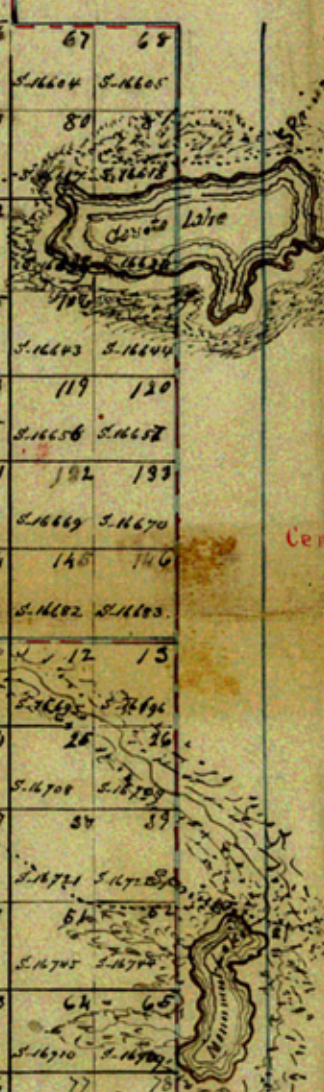 67 68
S-16604 S-16605
80
S-16618
Coyote Lake
S-16643 S-16644
119 120
S-16656 S-16657
132 133
S-16669 S-16670
Cen
145 146
S-16682 S-16683
12 13
S-16695 S-16696
25 26
S-16708 S-16709
38 39
S-16721 S-16722
51 52
S-16745 S-16744
64 65
S-16710 S-16709
77 78